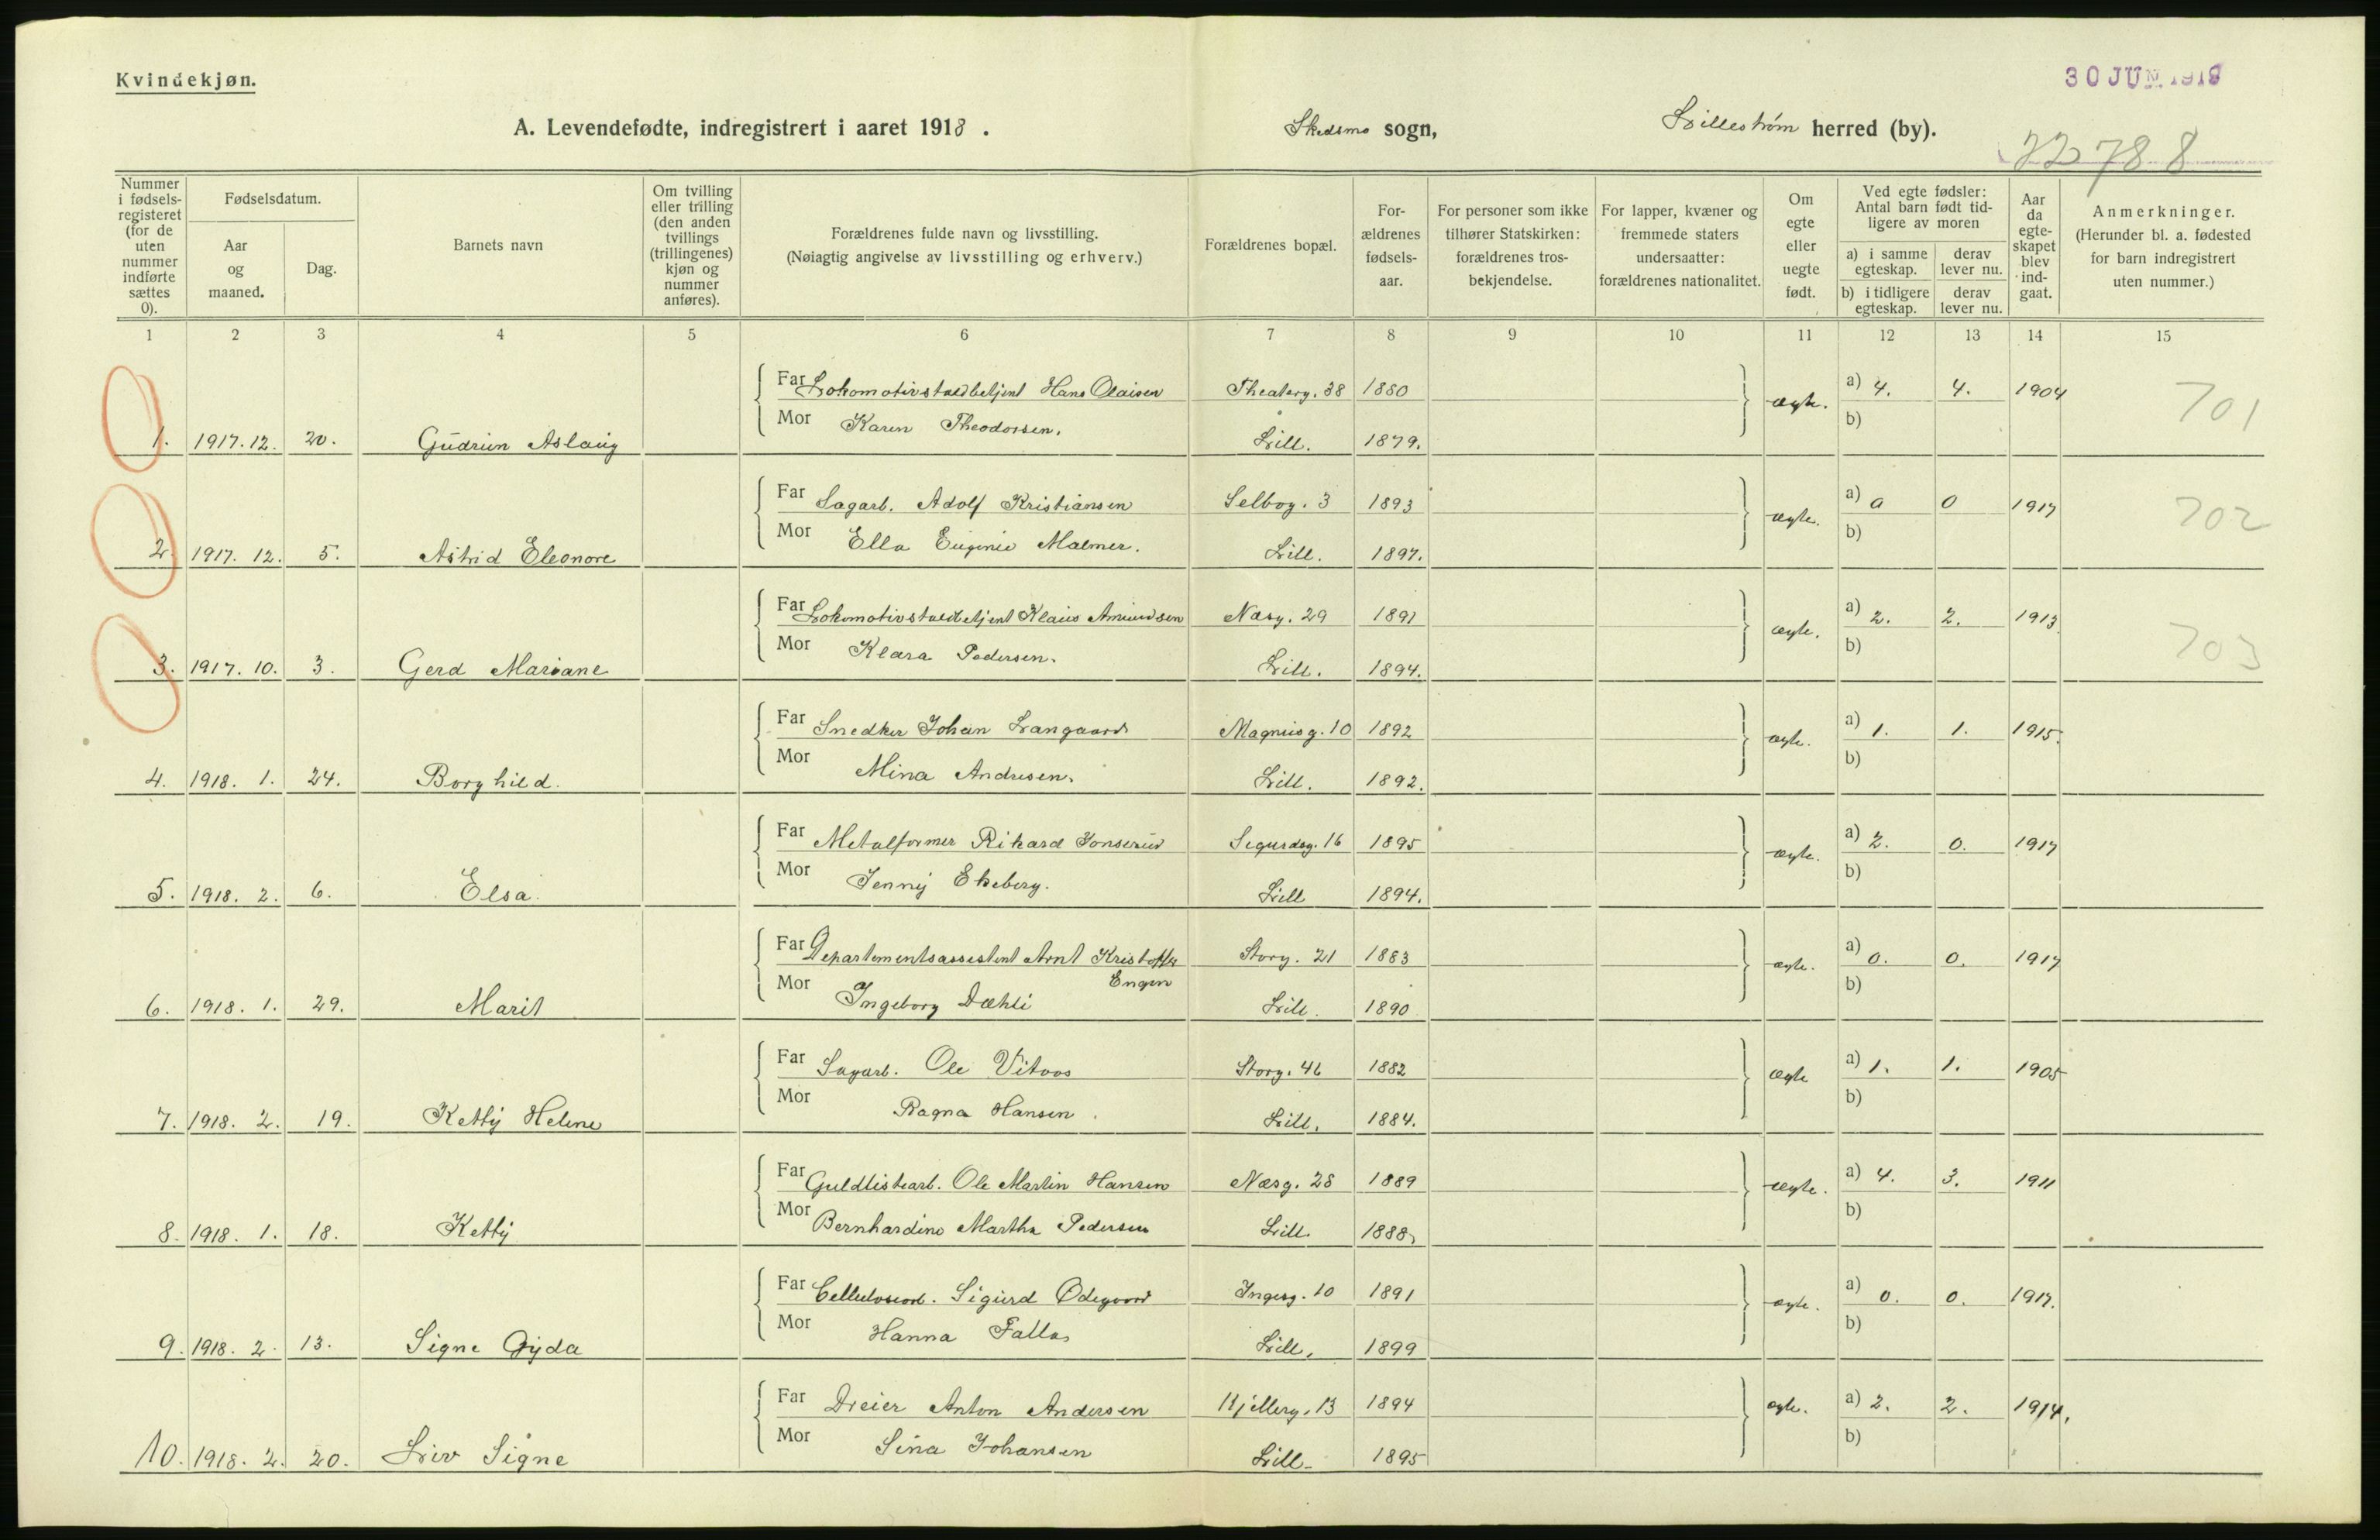 Kvindekjøn.
30 JUN 1918
A. Levendefødte, indregistrert i aaret 1918.
Skedsmo sogn,
Lillestrøm herred (by).
22788
Nummer i fødselsregisteret (for de uten nummer indførte sættes 0).
Fødselsdatum.
Aar og maaned.
Dag.
Barnets navn
Om tvilling eller trilling (den anden tvillings (trillingenes) kjøn og nummer anføres).
Forældrenes fulde navn og livsstilling.
(Nøiagtig angivelse av livsstilling og erhverv.)
Forældrenes bopæl.
Forældrenes fødselsaar.
For personer som ikke tilhører Statskirken: forældrenes trosbekjendelse.
For lapper, kvæner og fremmede staters undersaatter: forældrenes nationalitet.
Om egte eller uegte født.
Ved egte fødsler: Antal barn født tidligere av moren
a) i samme egteskap.
derav lever nu.
b) i tidligere egteskap.
derav lever nu.
Aar da egteskapet blev indgaat.
Anmerkninger.
(Herunder bl. a. fødested for barn indregistrert uten nummer.)
1 2 3 4 5 6 7 8 9 10 11 12 13 14 15
Far Lokomotivstaldbetjent Hans Olaisen Theaterg. 38 1880 ægte. a) 4. 4. 1904 701
1. 1917. 12. 20. Gudrun Aslaug Mor Karen Theodorsen. Lill. 1879. b)
Far Sagarb. Adolf Kristiansen Selbog. 3 1893 ægte. a) 0 0 1917 702
2. 1917. 12. 5. Astrid Eleonore Mor Ella Eugenie Malmer. Lill. 1897. b)
Far Lokomotivstaldbetjent Klaus Amundsen Næsg. 29 1891 ægte. a) 2. 2. 1913 703
3. 1917. 10. 3. Gerd Mariane Mor Klara Pedersen. Lill. 1894. b)
Far Snedker Johan Langaard Magnusg. 10 1892 ægte. a) 1. 1. 1915.
4. 1918. 1. 24. Borghild. Mor Mina Andresen. Lill. 1892. b)
Far Metalformer Rikard Jonserud Sigurdsg. 16 1895 ægte. a) 2. 0. 1917
5. 1918. 2. 6. Elsa. Mor Jenny Ekeberg. Lill 1894. b)
Far Departementsassistent Arnt Kristoffer Engen Storg. 21 1883 ægte. a) 0. 0. 1917
6. 1918. 1. 29. Marit Mor Ingeborg Dæhli Lill. 1890 b)
Far Sagarb. Ole Vitvos Storg. 46 1882 ægte a) 1. 1. 1905
7. 1918. 2. 19. Ketty Helene Mor Ragna Hansen. Lill. 1884. b)
Far Guldlistearb. Ole Martin Hansen Næsg. 28 1889 ægte. a) 4. 3. 1911
8. 1918. 1. 18. Ketty Mor Bernhardine Martha Pedersen Lill. 1888. b)
Far Cellulosearb. Sigurd Ødegaard Ingesg. 10 1891 ægte. a) 0. 0. 1917.
9. 1918. 2. 13. Signe Gyda Mor Hanna Falla Lill. 1899 b)
Far Dreier Anton Andersen Kjellerg. 13 1894 ægte. a) 2. 2. 1914.
10. 1918. 2. 20. Liv Signe Mor Sina Johansen Lill. 1895 b)